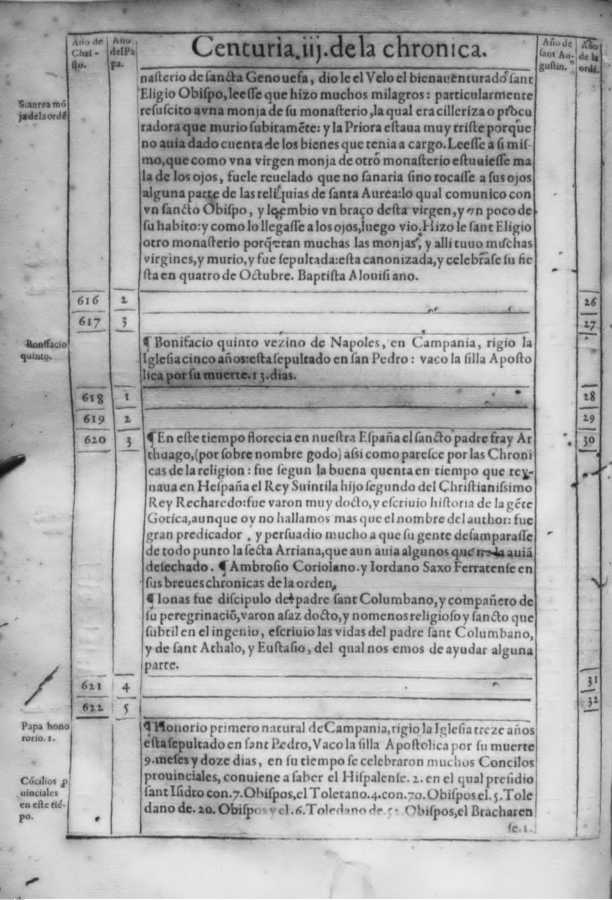 Año de Christo.
Año del Papa.
Centuria.iij.de la chronica.
Año de sant Augustin.
Año de la ordē.
Sant aurea mōja de la ordē
nasterio de sancta Genouefa, dio le el Velo el bienauenturado sant
Eligio Obispo, leesse que hizo muchos milagros: particularmente
resuscito avna monja de su monasterio, la qual era cilleriza o procu
radora que murio subitamēte: y la Priora estaua muy triste porque
no auia dado cuenta de los bienes que tenia a cargo. Leesse a si mis-
mo, que como vna virgen monja de otro monasterio estuuiesse ma
la de los ojos, fuele reuelado que no sanaria sino tocasse a sus ojos
alguna parte de las reliquias de santa Aurea: lo qual comunico con
vn sancto Obispo, y le embio vn braço desta virgen, y vn poco de
su habito: y como lo llegasse a los ojos, luego vio. Hizo le sant Eligio
otro monasterio porq̄ eran muchas las monjas, y alli tuuo muchas
virgines, y murio, y fue sepultada: esta canonizada, y celebrase su fie
sta en quatro de Octubre. Baptista Alouisiano.
616 2 26
617 3 27
Bonifacio quinto.
¶ Bonifacio quinto vezino de Napoles, en Campania, rigio la
Iglesia cinco años: esta sepultado en san Pedro: vaco la silla Aposto
lica por su muerte. 13. dias.
618 1 28
619 2 29
620 3 30
¶ En este tiempo florecia en nuestra España el sancto padre fray Ar
thuago, (por sobre nombre godo) assi como paresce por las Chroni
cas de la religion: fue segun la buena quenta en tiempo que rey-
naua en Hespaña el Rey Suintila hijo segundo del Christianissimo
Rey Recharedo: fue varon muy docto, y escriuio historia de la gēte
Gotica, aunque oy no hallamos mas que el nombre del author: fue
gran predicador, y persuadio mucho a que su gente desamparasse
de todo punto la secta Arriana, que aun auia algunos que no la auiā
desechado. ¶ Ambrosio Coriolano. y Iordano Saxo Ferratense en
sus breues chronicas de la orden,
¶ Ionas fue discipulo del padre sant Columbano, y compañero de
su peregrinaciō, varon asaz docto, y nomenos religioso y sancto que
subtil en el ingenio, escriuio las vidas del padre sant Columbano,
y de sant Athalo, y Eustasio, del qual nos emos de ayudar alguna
parte.
621 4 31
622 5 32
Papa honorio. 1.
¶ Honorio primero natural de Campania, rigio la Iglesia treze años
esta sepultado en sant Pedro, Vaco la silla Apostolica por su muerte
9. meses y doze dias, en su tiempo se celebraron muchos Concilos
prouinciales, conuiene a saber el Hispalense. 2. en el qual presidio
sant Isidro con. 7. Obispos, el Toletano. 4. con. 70. Obispos el. 5. Tole
dano de. 20. Obispos y el. 6. Toledano de Obispos, el Bracharen
Cōcilios puinciales en este tiēpo.
se. 1.